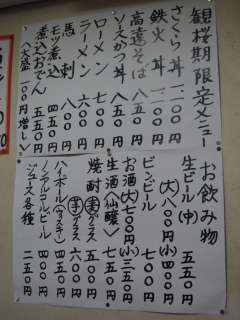 観桜期限定メニュー
さくら丼 一二〇〇円
鉄火丼 一二〇〇円
高遠そば 八五〇円
ソースかつ丼 八五〇円
ローメン 七〇〇円
ラーメン 六〇〇円
馬刺 八〇〇円
モツ煮込 四〇〇円
煮込おでん 五〇〇円
(大盛一〇〇円増し)
お飲み物
生ビール(中) 五五〇円
(大) 八〇〇円
ビンビール 七〇〇円
お酒(大)七〇〇円(小)四〇〇円
生酒(仙醸) 七五〇円(小)三五〇円
焼酎(麦)グラス 五五〇円
(芋)グラス 六〇〇円
ハイボール 五〇〇円
ノンアルコールビール 四五〇円
ジュース各種 二五〇円